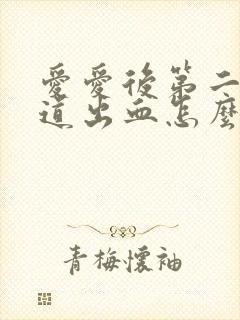 愛愛後第二
道出血怎麼
青梅懷袖